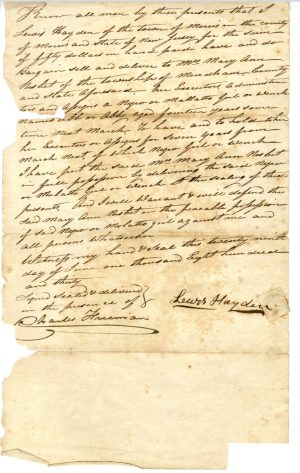 Know all men by these presents that I
Lewis Hayden of the town of Morris in the county
of Morris and State of New Jersey for the sum
of fifty dollars in hand paid have and do
Bargain sell and deliver to Mrs Mary Ann
Nesbit of the township of Mercham, County
and State aforesaid her Executors, Administra
tors and Assigns a Negro or Mallatto Girl or Wench
named or Abby aged fourteen years some
time next March. To have and to hold
her Executors or Assigns for Seven years from
March next, of which Negro Girl or Wench
I have put the said Mrs Mary Ann Nesbit
in full possession by delivering the said Negro
or Mulatto Girl or Wench at the sealing of these
presents, and I will Warrant & will defend the
said Mary Ann Nesbit in the peaceable possession
of said Negro or Molatto girl against me and
all persons whatsoever
Witness my hand & Seal this twenty ninth
day of June one thousand Eight hundred
and thirty
Signed sealed & delivered
in the presence of
Charles Freeman
Lewis Hayden